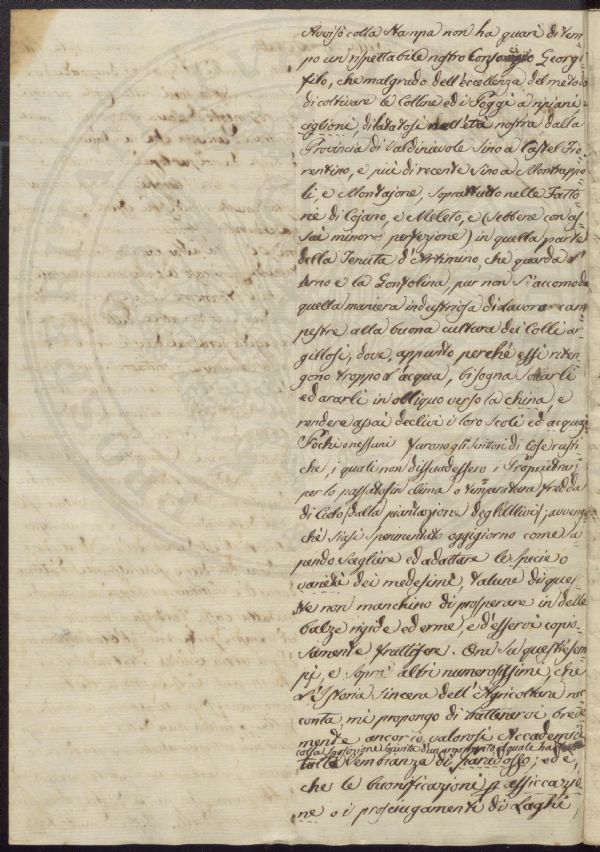 Avvisò colla stampa non ha guari di tem=
po un rispettabile nostro Consorzio Georgo=
filo, che malgrado dell'eccellenza del metodo
di coltivare le Colline ed i Poggi a ripiani=
ciglioni, dilatatosi nell'età nostra dalla
Provincia di Valdinievole sino a Castel Fio=
rentino, e più di recente sino a Montrappo
li, e Montajone, soprattutto nelle Fatto=
rie di Cojano, e Meleto, e (sebbene con as=
sai minore perfezione) in quella parte
della Tenuta d'Artimino, che guarda l'
Arno e la Gonfolina, pur non s'accomoda
quella maniera industriosa di lavoro cam=
pestre alla buona cultura dei Colli ar=
gillosi, dove, appunto perché essi riten=
gono troppo l'acqua, bisogna solcarli
ed ararli in obliquo verso la china, e
rendere assai declivi i loro scoli ed acquai.
Pochi o nessuni furono gli Scrittori di Cose rusti=
che, i quali non dissuadessero i Proprietarj
per lo passato in clima o temperatura fredda
di Cielo dalla piantazione degli Ulivi; avvenga
ché siasi sperimentato oggigiorno come sa=
pendo scegliere ed adattare le specie o
varietà dei medesimi, talune di ques=
te non manchino di prosperare in delle
balze rigide ed erme, e d'esservi copio=
samente fruttifere. Ora su questi esem=
pj, e sopra altri numerosissimi, che
l'Istoria sincera dell'Agricoltura rac=
conta, mi propongo di trattenervi breve
mente ancor io, valorosi Accademici
colla sposizione d'un argomento il quale ha
tutte sembianze di paradosso; ed è,
che le buonificazioni per essiccazio=
ne o i prosciugamenti di Laghi,